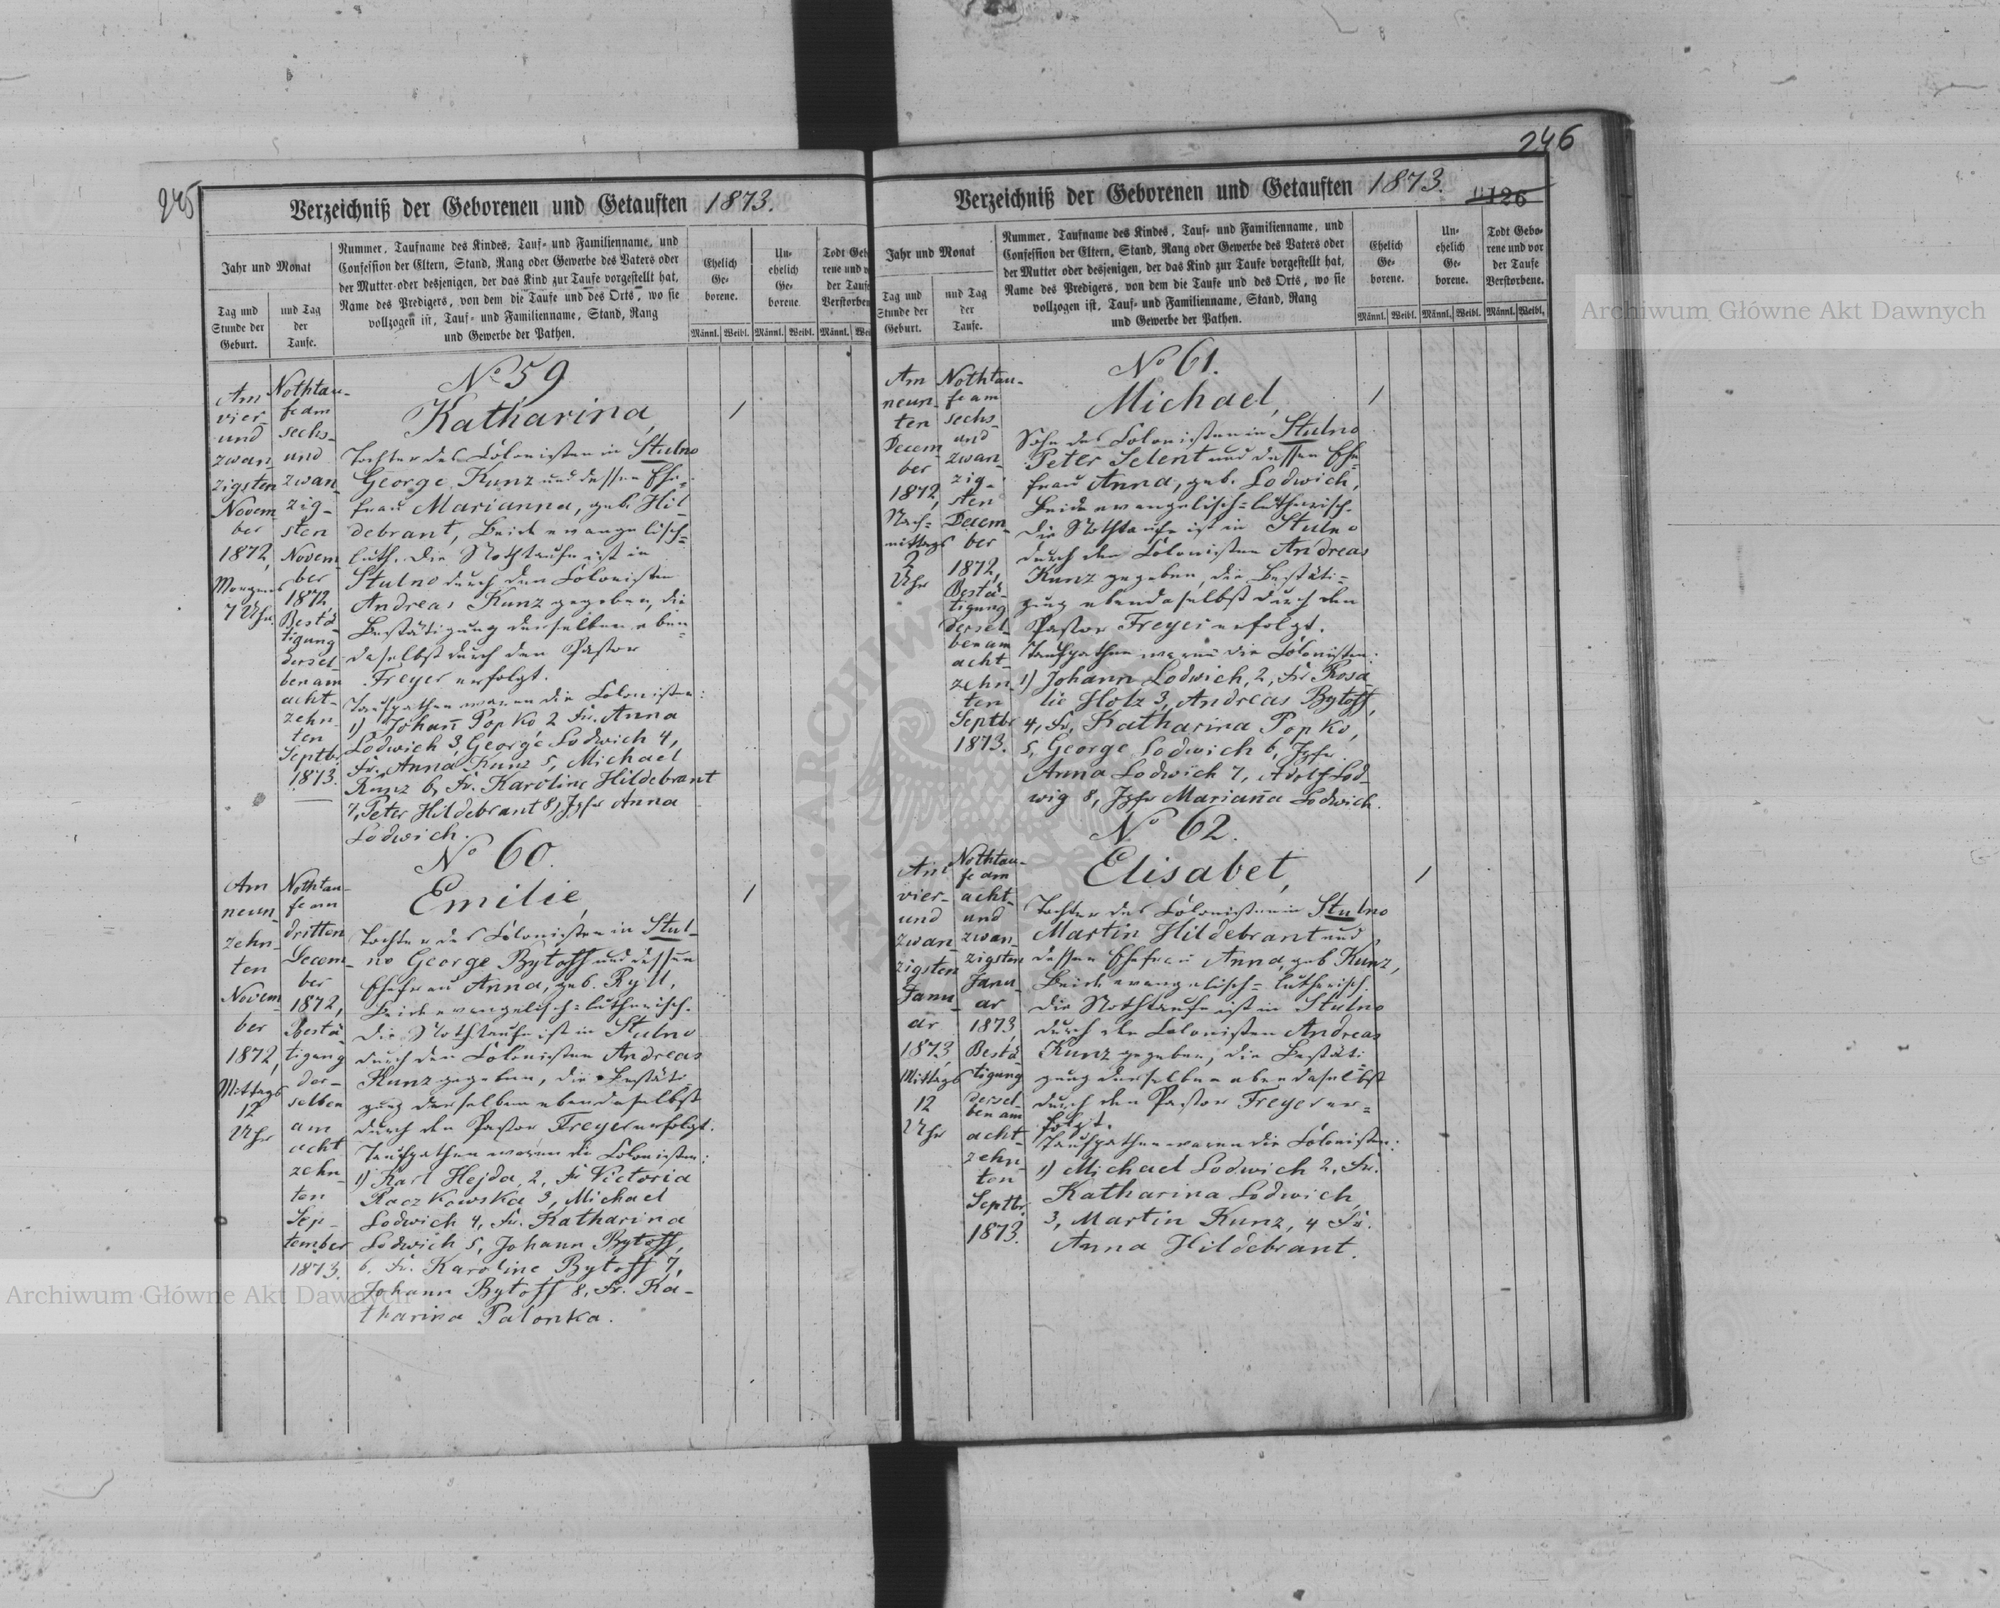 245
Verzeichniß der Geborenen und Getauften 1873.
Jahr und Monat
Tag und Stunde der Geburt.
und Tag der Taufe.
Nummer, Taufname des Kindes, Tauf- und Familienname, und
Confession der Eltern, Stand, Rang oder Gewerbe des Vaters oder
der Mutter oder desjenigen, der das Kind zur Taufe vorgestellt hat,
Name des Predigers, von dem die Taufe und des Orts, wo sie
vollzogen ist, Tauf- und Familienname, Stand, Rang
und Gewerbe der Pathen.
Ehelich Ge-borene.
Un-ehelich Ge-borene.
Männl. Weibl. Männl. Weibl. Männl.
Am
vier-
und
zwan-
zigsten
Novem
ber
1872,
Morgens
7 Uhr.
Nothtau-
fe am
sechs-
und
zwan-
zig-
sten
Novem
ber
1872,
Bestä-
tigung
dersel
ben am
acht-
zehn-
ten
Septbr.
1873.
No 59
Katharina,
1
Tochter des Colonisten in Stulno
George Kunz und dessen Ehe-
frau Marianna, geb. Hil-
debrant, Beide evangelisch-
luth. Die Nothtaufe ist in
Stulno durch den Colonisten
Andreas Kunz gegeben, die
Bestätigung derselben eben-
daselbst durch den Pastor
Freyer erfolgt.
Taufpathen waren die Colonisten:
1) Johañ Popko, 2 Fr. Anna
Lodwich 3, George Lodwich 4,
Fr. Anna Kunz 5, Michael
Kunz 6, Fr. Karoline Hildebrant
7, Peter Hildebrant 8) Jgfr Anna
Lodwich.
Am
neun-
zehn-
ten
Novem-
ber
1872,
Mittags
12
Uhr
Nothtau-
fe am
dritten
Decem-
ber
1872,
Bestä-
tigung
der-
selben
am
acht
zehn-
ten
Sep-
tember
1873.
No 60.
Emilie,
1
Tochter des Colonisten in Stul-
no George Bytoff und dessen
Ehefrau Anna, geb. Ryll,
Beide evangelisch-lutherisch.
Die Nothtaufe ist in Stulno
durch den Colonisten Andreas
Kunz gegeben, die Bestäti-
gung derselben ebendaselbst
durch den Pastor Freyer erfolgt.
Taufpathen waren die Colonisten:
1) Karl Hejda, 2, Fr Victoria
Raczkowska, 3, Michael
Lodwich 4, Fr. Katharina
Lodwich 5, Johann Bytoff,
6. Fr. Karoline Bytoff 7,
Johann Bytoff 8, Fr. Ka-
tharina Palonka.
246
Verzeichniß der Geborenen und Getauften 1873.
126
Jahr und Monat
Tag und Stunde der Geburt.
und Tag der Taufe.
Nummer, Taufname des Kindes, Tauf- und Familienname, und
Confession der Eltern, Stand, Rang oder Gewerbe des Vaters oder
der Mutter oder desjenigen, der das Kind zur Taufe vorgestellt hat,
Name des Predigers, von dem die Taufe und des Orts, wo sie
vollzogen ist, Tauf- und Familienname, Stand, Rang
und Gewerbe der Pathen.
Ehelich Ge-borene.
Un-ehelich Ge-borene.
Todt Gebo-rene und vor der Taufe Verstorbene.
Männl. Weibl. Männl. Weibl. Männl. Weibl.
Am
neun-
ten
Decem
ber
1872,
Nach-
mittags
2
Uhr
Nothtau-
fe am
sechs-
und
zwan-
zig-
sten
Decem-
ber
1872,
Bestä-
tigung
dersel-
ben am
acht-
zehn-
ten
Septbr
1873.
No 61.
Michael,
1
Sohn des Colonisten in Stulno
Peter Selent und dessen Ehe-
frau Anna, geb. Lodwich,
Beide evangelisch-lutherisch.
Die Nothtaufe ist in Stulno
durch den Colonisten Andreas
Kunz gegeben, die Bestäti-
gung ebendaselbst durch den
Pastor Freyer erfolgt.
Taufpathen waren die Colonisten:
1) Johann Lodwich, 2, Fr Rosa-
lie Holz 3, Andreas Bytoff,
4, Fr. Katharina Popko,
5, George Lodwich 6, Jgfr
Anna Lodwich 7, Adolf Lod-
wig 8, Jgfr Mariañа Lodwich.
Am
vier-
und
zwan-
zigsten
Janu-
ar
1873,
Mittags
12
Uhr
Nothtau-
fe am
acht-
und
zwan-
zigsten
Janu-
ar
1873,
Bestä-
tigung
dersel-
ben am
acht-
zehn-
ten
Septbr.
1873.
No 62.
Elisabet,
1
Tochter des Colonisten in Stulno
Martin Hildebrant und
dessen Ehefrau Anna, geb Kunz,
Beide evangelisch-lutherisch.
Die Nothtaufe ist in Stulno
durch den Colonisten Andreas
Kunz gegeben, die Bestäti-
gung derselben ebendaselbst
durch den Pastor Freyer er-
folgt.
Taufpathen waren die Colonisten:
1) Michael Lodwich 2, Fr.
Katharina Lodwich,
3, Martin Kunz, 4 Fr.
Anna Hildebrant.
Archiwum Główne Akt Dawnych
Archiwum Główne Akt Dawnych